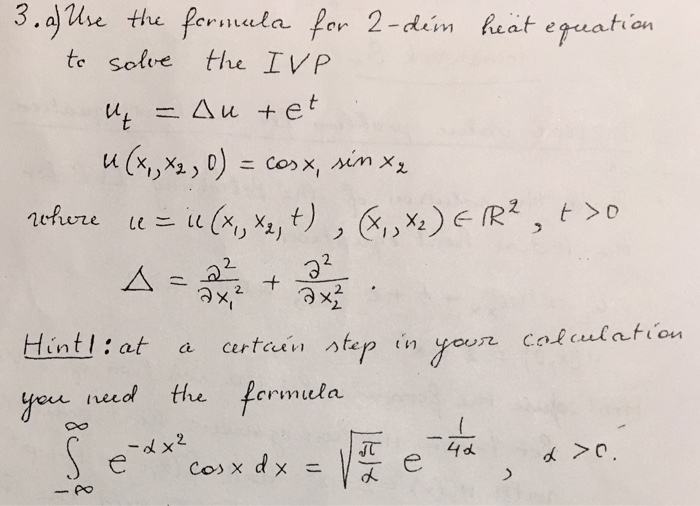 3. a) Use the formula for 2-dim heat equation
to solve the IVP
u_t = Δu + e^t
u(x₁, x₂, 0) = cos x₁ sin x₂
where u = u(x₁, x₂, t), (x₁, x₂) ∈ ℝ², t > 0
Δ = ∂²/∂x₁² + ∂²/∂x₂² .
Hint1: at a certain step in your calculation
you need the formula
∫_{-∞}^{∞} e^{-αx²} cos x dx = √(π/α) e^{-1/(4α)}, α > 0.